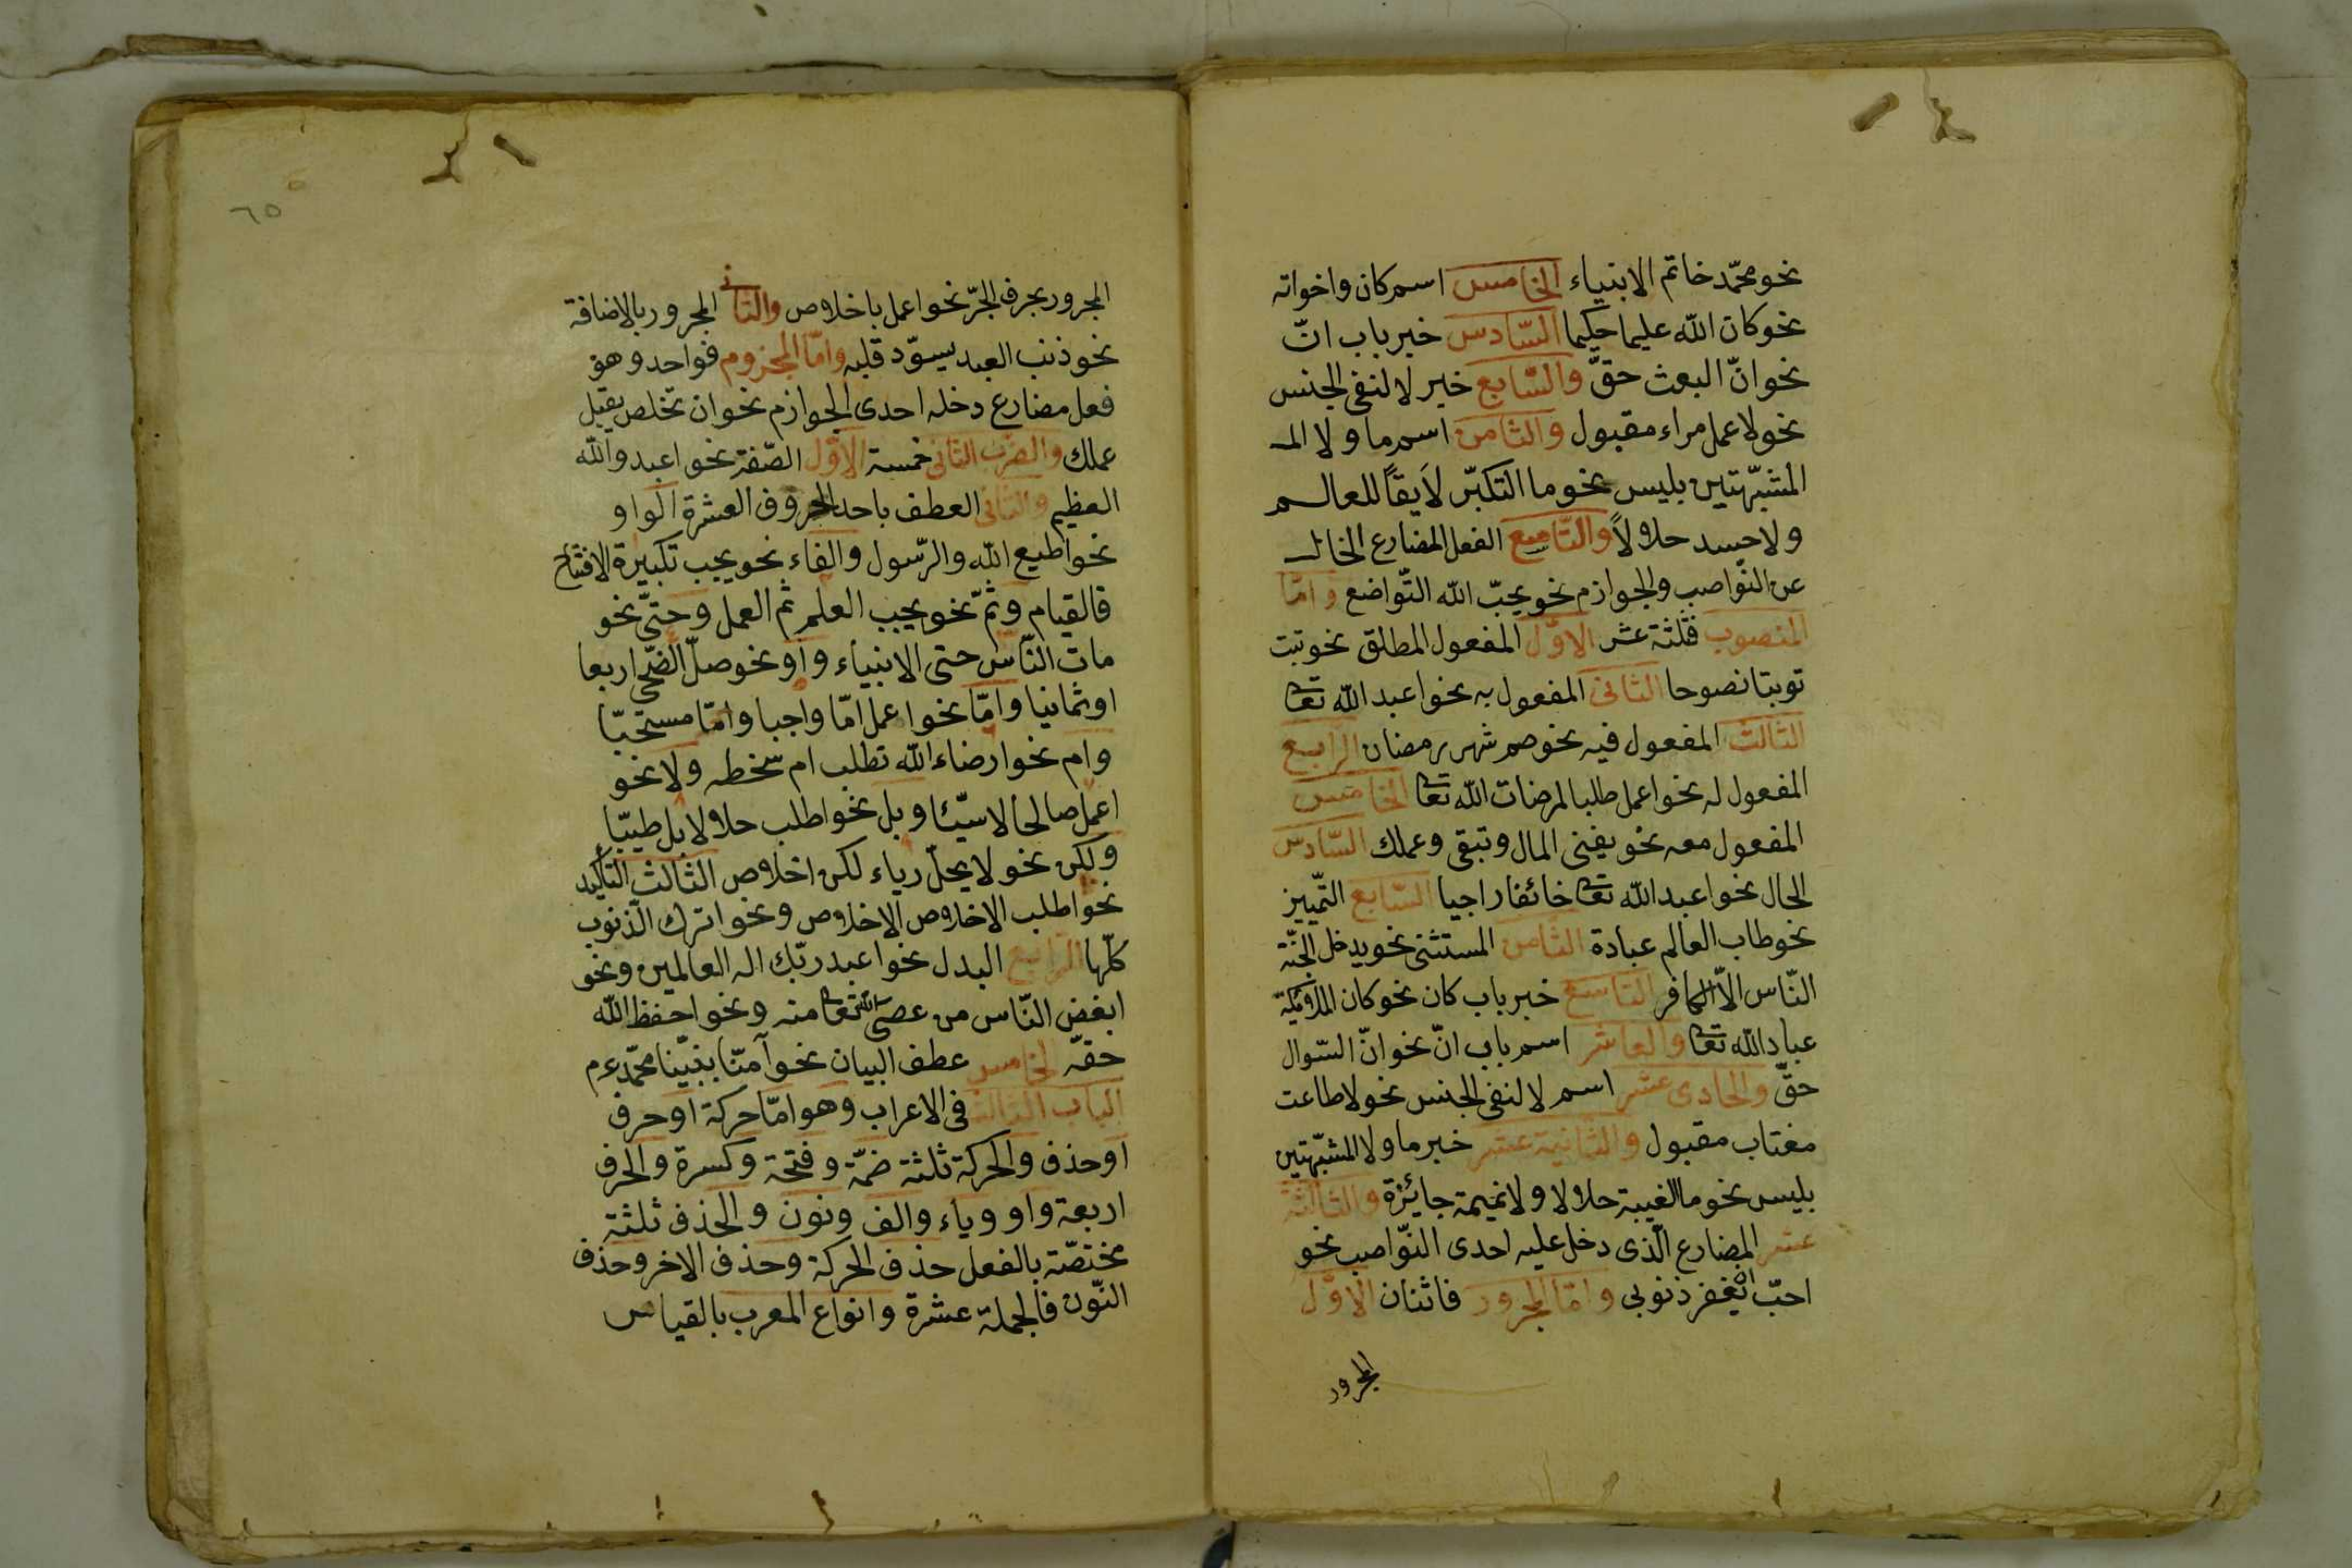 نحو محمّد خاتم الانبياء الخامس اسم كان واخواته
نحو كان الله عليما حكيما السّادس خبر باب انّ
نحو انّ البعث حقّ والسّابع خبر لا لنفى الجنس
نحو لا عمل مراء مقبول والثامن اسم ما ولا المـ
المشبّهتين بليس نحو ما التكبّر لايقاً للعالم
ولا حسد حلالاً والتّاسع الفعل المضارع الخالـ
عن النّواصب والجوازم نحو يحبّ الله التّواضع وامّا
المنصوب فثلثة عشر الاوّل المفعول المطلق نحو تبت
توبتا نصوحا الثانى المفعول به نحو اعبد الله تعا
الثالث المفعول فيه نحو صم شهر رمضان الرابع
المفعول له نحو اعمل طلبا لمرضات الله تعا الخامس
المفعول معه نحو يفنى المال وتبقى وعملك السّادس
الحال نحو اعبد الله تعا خائفا راجيا السّابع التّمييز
نحو طاب العالم عبادة الثامن المستثنى نحو يدخل الجنّة
النّاس الاّ الكافر التاسع خبر باب كان نحو كان الملائكة
عباد الله تعا والعاشر اسم باب انّ نحو انّ السّوال
حقّ والحادى عشر اسم لا لنفى الجنس نحو لا طاعت
مغتاب مقبول والثانية عشر خبر ما ولا المشبّهتين
بليس نحو ما الغيبة حلالا ولا نميمة جايئزة والثالثة
عشر المضارع الّذى دخل عليه احدى النّواصب نحو
احبّ ان يغفر ذنوبى وامّا المجرور فاثنان الاوّل
المجرور
٦٥
المجرور بحرف الجرّ نحو اعمل باخلاص والثانى المجرور بالاضافة
نحو ذنب العبد يسوّد قلبه وامّا المجزوم فواحد وهو
فعل مضارع دخله احدى الجوازم نحو ان تخلص يقبل
عملك والضرب الثانى خمسة الاوّل الصّفة نحو اعبدو الله
العظيم والثانى العطف باحد الحروف العشرة الواو
نحو اطيع الله والرّسول والفاء نحو يجب تكبيرة الافتتاح
فالقيام وثمّ نحو يجب العلم ثم العمل وحتىّ نحو
مات النّاس حتى الانبياء واو نحو صلّ الضّحى اربعا
او ثمانيا وامّا نحو اعمل امّا واجبا وامّا مستحبّا
وام نحو ارضاء الله تطلب ام سخطه ولا نحو
اعمل صالحا لا سيّئا وبل نحو اطلب حلالا بل طيبّا
ولكن نحو لا يحلّ رياء لكن اخلاص الثالث التاكيد
نحو اطلب الاخلاص الاخلاص ونحو اترك الّذنوب
كلّها الرابع البدل نحو اعبد ربّك اله العالمين ونحو
ابغض النّاس من عصى الله تعا منه ونحو احفظ الله
حقّه لخامس عطف البيان نحو آمنّا بنبيّنا محمّد عم
الباب الثالث فى الاعراب وهو امّا حركة او حرف
او حذف والحركة ثلثة ضمّة وفتحة وكسرة والحرف
اربعة واو وياء والف ونون والحذف ثلثة
مختصّة بالفعل حذف الحركة وحذف الاخر وحذف
النّون فالجملة عشرة وانواع المعرب بالقياس